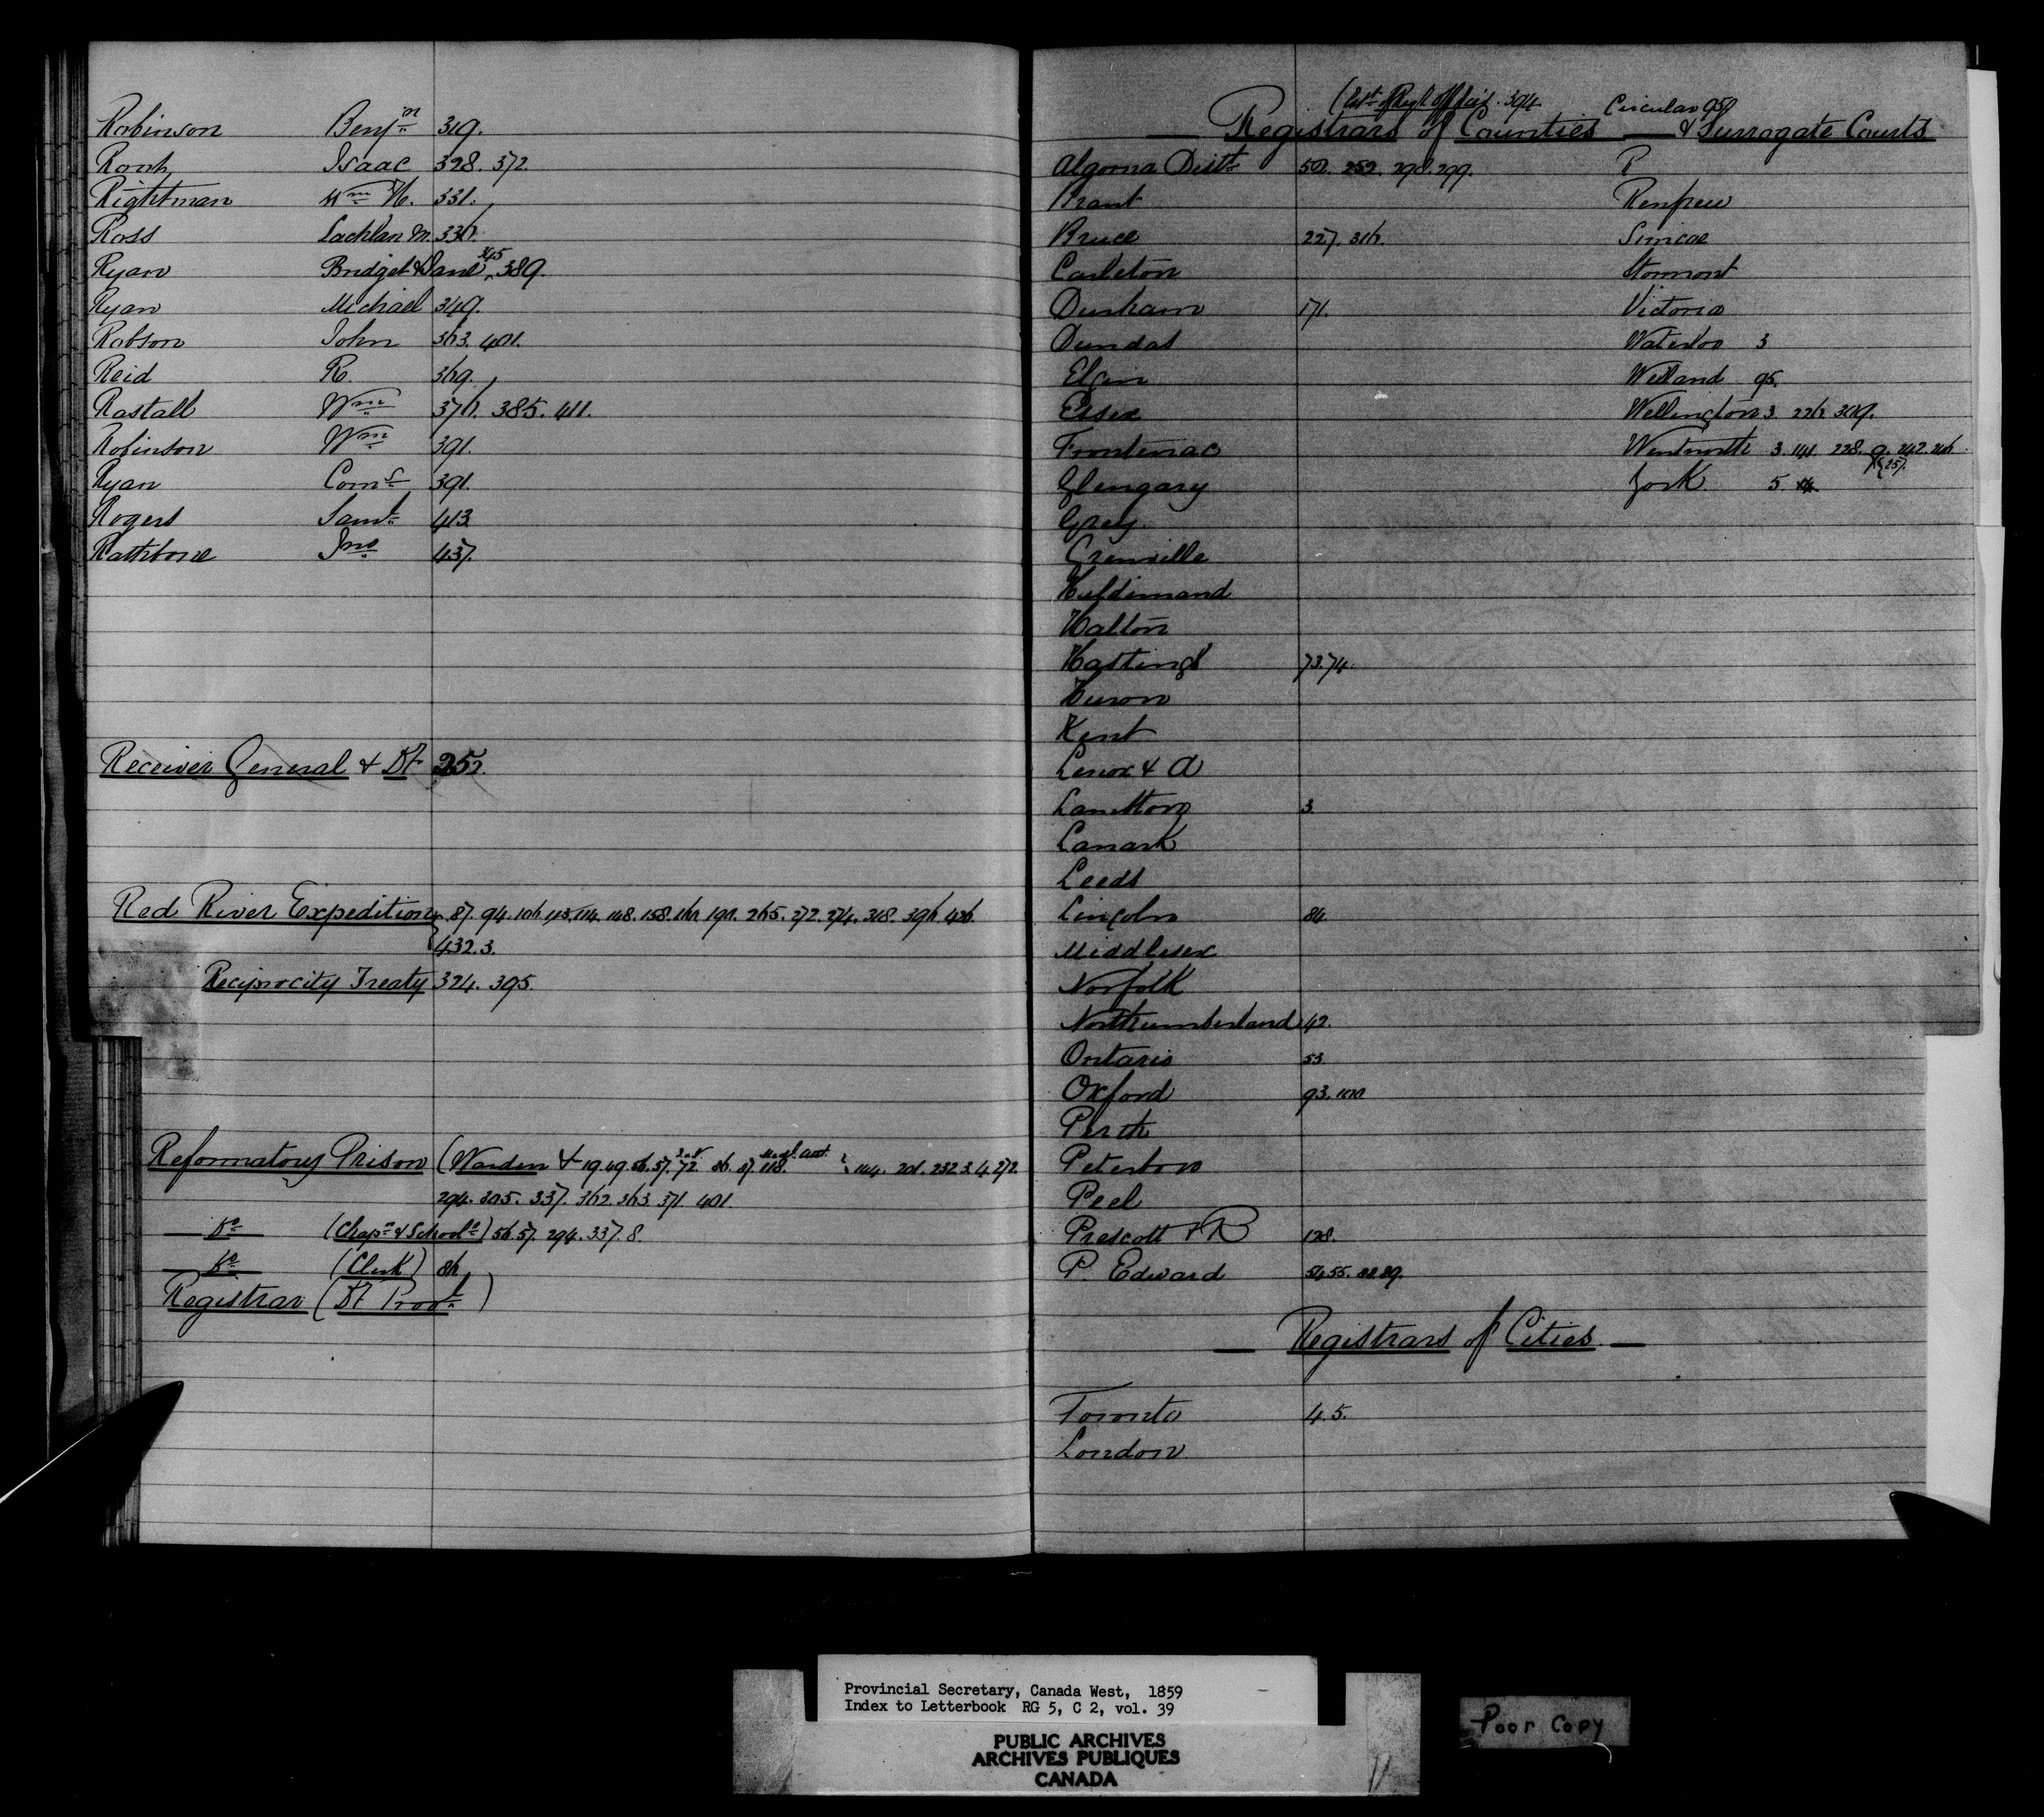 Robinson Benjn 319.
Rorch Isaac 328. 372.
Rightman Wm H. 331.
Ross Lachlan M. 336.
Ryan Bridget & Jane 345 389.
Ryan Michael 349.
Robson John 363. 401.
Reid R. 369.
Rastall Wm 376. 385. 411.
Robinson Wm 391.
Ryan Corns 391.
Rogers Saml 413.
Rathbone Jno 437.
Receiver General & Dt 252.
Red River Expedition 87. 94. 106. 113. 114. 148. 158. 160. 190. 265. 272. 274. 318. 396. 426.
432. 3.
Reciprocity Treaty 324. 395.
Reformatory Prison (Warden & 19. 49. 56. 57. 72. 86. 87. 118. 144. 201. 232. 3. 4. 272.
294. 305. 337. 362. 363. 371. 401.
Do (Chapn & Schoolr) 56. 57. 294. 337. 8.
Do (Clerk) 86
Registrar (Dt Provl)
394 Circular 95
Registrars of Counties & Surrogate Courts
Algoma Distt 252. 298. 299. R
Brant Renfrew
Bruce 227. 316. Simcoe
Carleton Stormont
Durham 171. Victoria
Dundas Waterloo 3
Elgin Welland 95.
Essex Wellington 3. 226. 309.
Frontenac Wentworth 3. 141. 228. 9. 242. 246. 257.
Glengary York 5.
Grey
Grenville
Haldimand
Halton
Hastings 73. 74.
Huron
Kent
Lenox & A
Lambton 3.
Lanark
Leeds
Lincoln 84.
Middlesex
Norfolk
Northumberland 42.
Ontario 53
Oxford 93. 100
Perth
Peterboro
Peel
Prescott & R 128.
P. Edward 54. 55. 88. 89.
Registrars of Cities
Toronto 4. 5.
London
Provincial Secretary, Canada West, 1859
Index to Letterbook RG 5, C 2, vol. 39
PUBLIC ARCHIVES
ARCHIVES PUBLIQUES
CANADA
Poor Copy